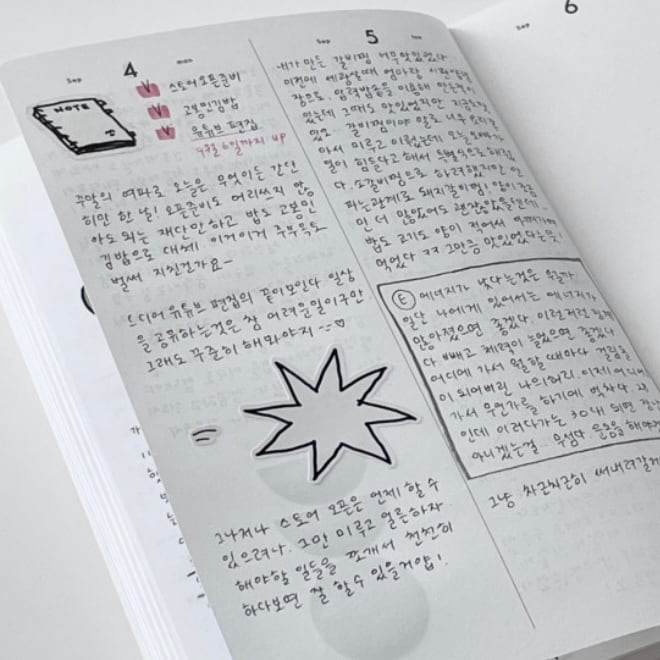 Sep 4 mon
NOTE
V 스토어오픈준비
V 고봉민김밥
V 유튜브 편집
9월 6일까지 up
주말의 여파로 오늘은 무엇이든 간단
히만 한 날! 오픈준비도 머리쓰지 않
아도 되는 재단만하고 밥도 고봉민
김밥으로 대체! 이거이거 주부욱도
벌써 지친건가요~
드디어 유튜브 편집의 끝이보인다. 일상
을 공유하는것은 참 어려운일이구만.
그래도 꾸준히 해봐야지 --♡
그나저나 스토어 오픈은 언제 할 수
있으려나. 그만 미루고 얼른하자.
해야할 일들을 쪼개서 천천히
하다보면 잘 할 수 있을거야!
Sep 5 tue
내가 만든 갈비찜 너무맛있었다.
이전에 엄마랑 시판양념
장으로, 압력밥솥을 이용해 만든적이
있는데 그때도 맛있었지만 지금도맛
있었 갈비찜이야 말로 너무
아서 미루고 미뤘는데 오늘 오빠가
일이 힘들다고 해서 특별식으로 해줬
다. 소갈비찜으로 하려했지만 안
파는관계로 돼지갈비찜! 양이 조금
만 더 많았어도 괜찮았을텐데..
밥도 고기도 양이 적어서 아껴가며
먹었다 ㅋㅋ 그만큼 맛있었다는 뜻.
E 에너지가 낮다는것은 뭘까?
일단 나에게 있어서는 에너지가
많아졌으면 좋겠다. 이런저런 핑계
다 빼고 체력이 늘었으면 좋겠다
어디에 가서 뭘 할 때마다 걸림돌
이 되어버린 나의허리. 이제 어디에
가서 무언가를 하기에 벅차다. 고
인데 이러다가는 30대 되면
아니겠는걸.. 무섭다 운동을 해야
그냥 차근차근히 써내려갈게
6